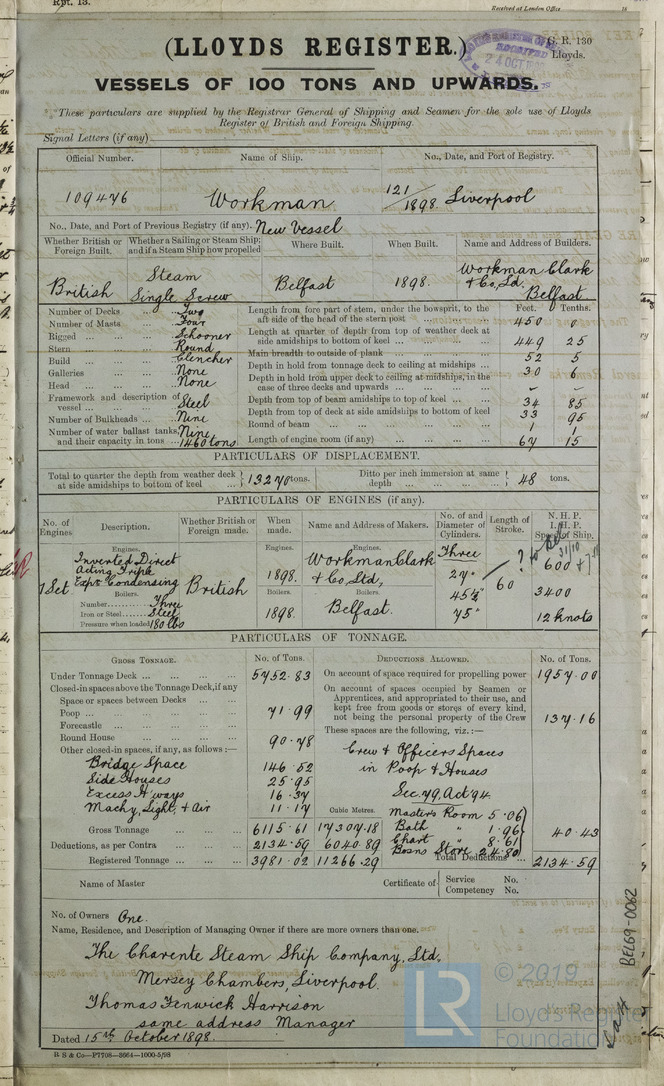 Rpt. 13.
Received at London Office
(LLOYDS REGISTER.)
G. R. 130
Lloyds.
RECEIVED
24 OCT 1898
VESSELS OF 100 TONS AND UPWARDS.
These particulars are supplied by the Registrar General of Shipping and Seamen for the sole use of Lloyds
Register of British and Foreign Shipping.
Signal Letters (if any)
Official Number. Name of Ship. No., Date, and Port of Registry.
109476 Workman 121/1898. Liverpool
No., Date, and Port of Previous Registry (if any). New Vessel
Whether British or Foreign Built. Whether a Sailing or Steam Ship; and if a Steam Ship how propelled Where Built. When Built. Name and Address of Builders.
British Steam Single Screw Belfast 1898. Workman Clark & Co, Ld. Belfast.
Feet. Tenths.
Number of Decks ... ... Two
Number of Masts ... ... Four
Rigged ... ... ... Schooner
Stern ... ... ... Round
Build ... ... ... Clencher
Galleries ... ... ... None
Head ... ... ... None
Framework and description of vessel ... ... ... Steel
Number of Bulkheads ... ... Nine
Number of water ballast tanks, and their capacity in tons ... Nine 1460 tons
Length from fore part of stem, under the bowsprit, to the aft side of the head of the stern post ... ... ... 450 0
Length at quarter of depth from top of weather deck at side amidships to bottom of keel ... ... ... 449 25
Main breadth to outside of plank ... ... ... 52 5
Depth in hold from tonnage deck to ceiling at midships ... 30 6
Depth in hold from upper deck to ceiling at midships, in the case of three decks and upwards ... ... ...
Depth from top of beam amidships to top of keel ... ... 34 85
Depth from top of deck at side amidships to bottom of keel 33 95
Round of beam ... ... ... ... ... 1 1
Length of engine room (if any) ... ... ... ... 67 15
PARTICULARS OF DISPLACEMENT.
Total to quarter the depth from weather deck at side amidships to bottom of keel ... 13270 tons. Ditto per inch immersion at same depth ... ... ... 48 tons.
PARTICULARS OF ENGINES (if any).
No. of Engines Description. Whether British or Foreign made. When made. Name and Address of Makers. No. of and Diameter of Cylinders. Length of Stroke. N. H. P. I. H. P. Speed of Ship.
Engines. Engines. Engines.
1 Set Inverted Direct Acting Triple Exp. Condensing British 1898. Workman Clark & Co, Ltd, Three 27" 60 600
Boilers. Boilers. Boilers.
Number Three
Iron or Steel Steel
Pressure when loaded 180 lbs
1898. Belfast. 45½" 75" 3400 12 knots
PARTICULARS OF TONNAGE.
GROSS TONNAGE. No. of Tons. DEDUCTIONS ALLOWED. No. of Tons.
Under Tonnage Deck ... ... ... 5752.83
Closed-in spaces above the Tonnage Deck, if any
Space or spaces between Decks ... ...
Poop ... ... ... ... 71.99
Forecastle ... ... ... ...
Round House ... ... ... 90.78
Other closed-in spaces, if any, as follows :—
Bridge Space 146.52
Side Houses 25.95
Excess H'ways 16.37
Machy, Light, & Air 11.17
On account of space required for propelling power 1957.00
On account of spaces occupied by Seamen or Apprentices, and appropriated to their use, and kept free from goods or stores of every kind, not being the personal property of the Crew 137.16
These spaces are the following, viz. :—
Crew & Officers Spaces
in Poop & Houses
Sec. 79, Act '94
Cubic Metres.
Master's Room 5.06
Bath " 1.96
Chart " 8.61
Bosns Store 24.80
40.43
Gross Tonnage ... ... ... 6115.61 17307.18
Deductions, as per Contra ... ... 2134.59 6040.89
Registered Tonnage ... ... ... 3981.02 11266.29
Total Deductions ... 2134.59
Name of Master Certificate of Service No. Competency No.
No. of Owners One.
Name, Residence, and Description of Managing Owner if there are more owners than one.
The Charente Steam Ship Company, Ltd,
Mersey Chambers, Liverpool.
Thomas Fenwick Harrison
same address Manager
Dated 15th October 1898.
R S & Co—P7708—3664—1000-5/98
BEL69-0062
LR
© 2019
Lloyd's Register
Foundation